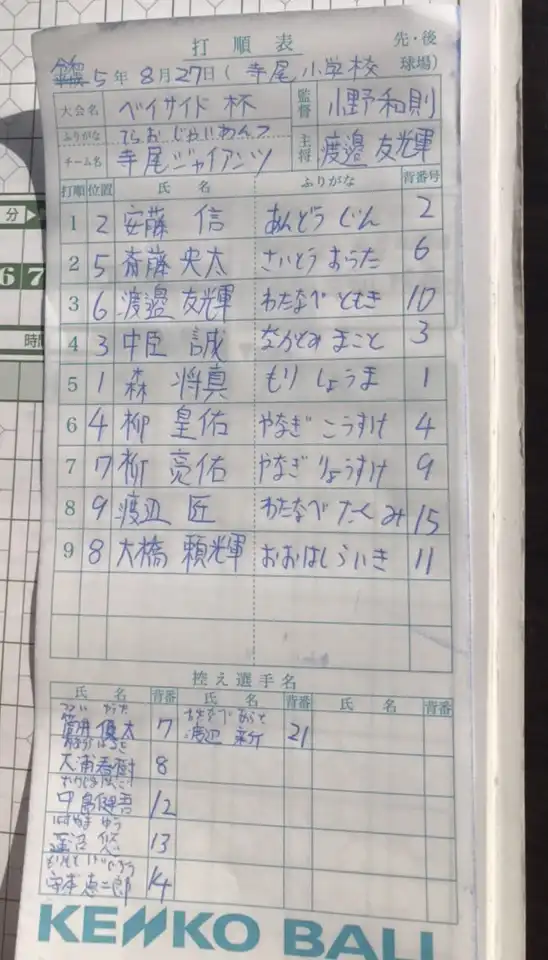 打順表
先・後
令和5年8月27日(寺尾小学校球場)
大会名 ベイサイド杯 監督 小野和則
ふりがな てらお じゃいあんつ
チーム名 寺尾ジャイアンツ 主将 渡邉 友光輝
打順 位置 氏名 ふりがな 背番号
1 2 安藤 信 あんどう じん 2
2 5 斎藤 央太 さいとう おうた 6
3 6 渡邉 友光輝 わたなべ ともき 10
4 3 中臣 誠 なかとみ まこと 3
5 1 森 将真 もり しょうま 1
6 4 柳 皇佑 やなぎ こうすけ 4
7 7 柳 亮佑 やなぎ りょうすけ 9
8 9 渡辺 匠 わたなべ たくみ 15
9 8 大橋 頼光輝 おおはし らいき 11
控え選手名
氏名 背番 氏名 背番 氏名 背番
つつい ゆうた わたなべ あらた
筒井 優太 7 渡辺 新 21
大浦春樹 8
中島健吾 12
はすぬま ゆう
蓮沼 悠 13
安本 恵二郎 14
KENKO BALL
分
6 7
時間